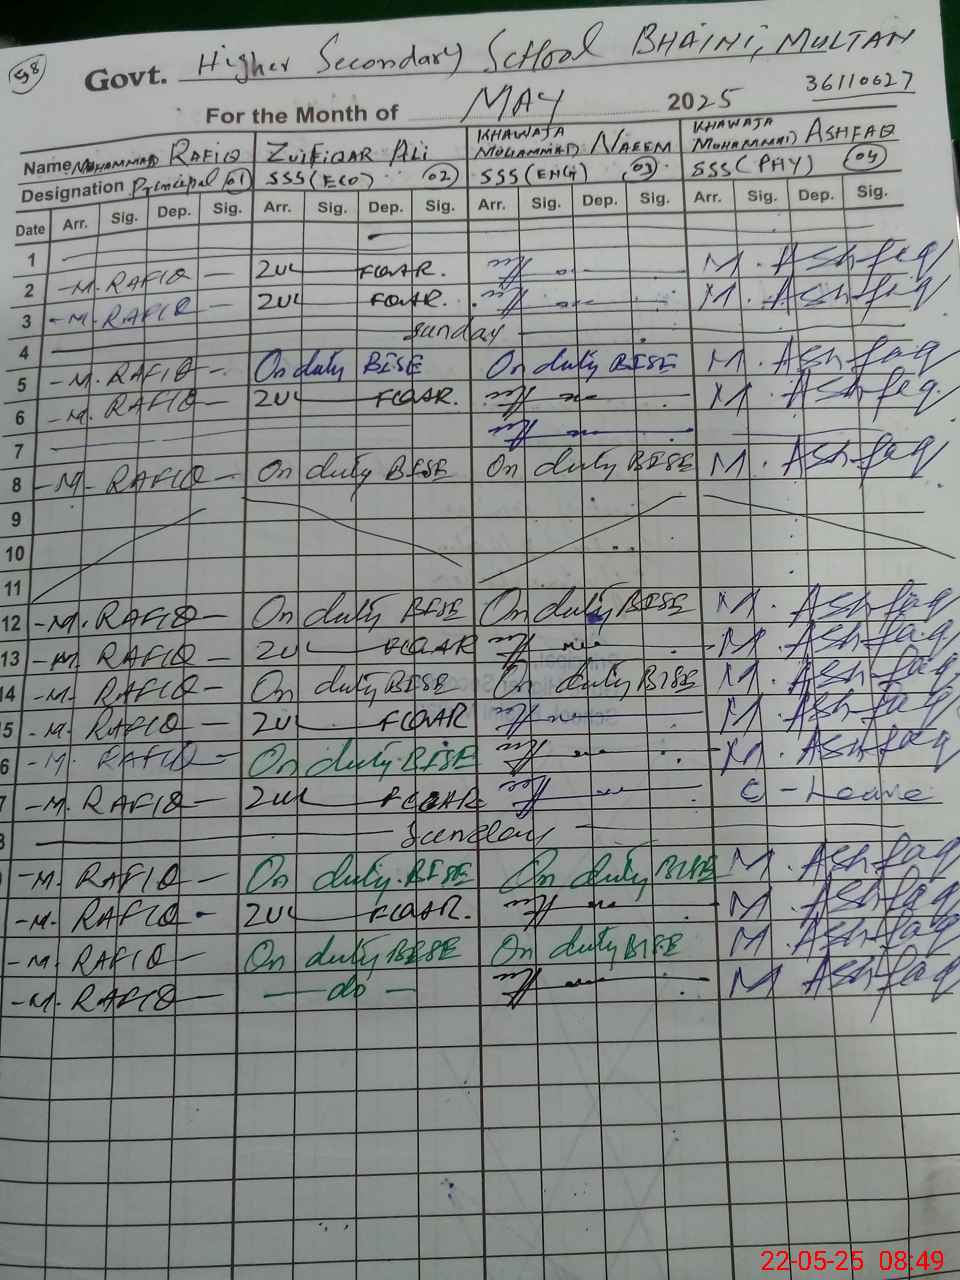 58
Govt. Higher Secondary School BHAINI, MULTAN
36110627
For the Month of MAY 2025
Name MUHAMMAD RAFIQ ZUlFiQAR Ali KHAWAJA MUHAMMAD NAEEM KHAWAJA MUHAMMAD ASHFAQ
Designation Principal 01 SSS(ECO) 02 SSS(ENG) 03 SSS(PHY) 04
Date Arr. Sig. Dep. Sig. Arr. Sig. Dep. Sig. Arr. Sig. Dep. Sig. Arr. Sig. Dep. Sig.
1
2 -M. RAFIQ - ZUL FIQAR. M. Ashfaq
3 -M. RAFIQ - ZUL FIQAR. M. Ashfaq
4 Sunday
5 -M. RAFIQ - On duty BISE On duty BISE M. Ashfaq
6 -M. RAFIQ - ZUL FIQAR. M. Ashfaq
7
8 -M- RAFIQ - On duty BISE On duty BISE M. Ashfaq
9
10
11
12 -M. RAFIQ - On duty BISE On duty BISE M. Ashfaq
13 -M RAFIQ - ZUL FIQAR M. Ashfaq
14 -M. RAFIQ - On duty BISE On duty BISE M. Ashfaq
5 -M. RAFIQ - ZUL FIQAR M. Ashfaq
6 -M. RAFIQ - On duty BISE M. Ashfaq
7 -M. RAFIQ - ZUL FIQAR C - Leave
8 Sunday
-M. RAFIQ - On duty BISE On duty BISE M. Ashfaq
-M. RAFIQ - ZUL FIQAR. M. Ashfaq
-M. RAFIQ - On duty BISE On duty BISE M. Ashfaq
-M. RAFIQ - -do- M Ashfaq
22-05-25 08:49